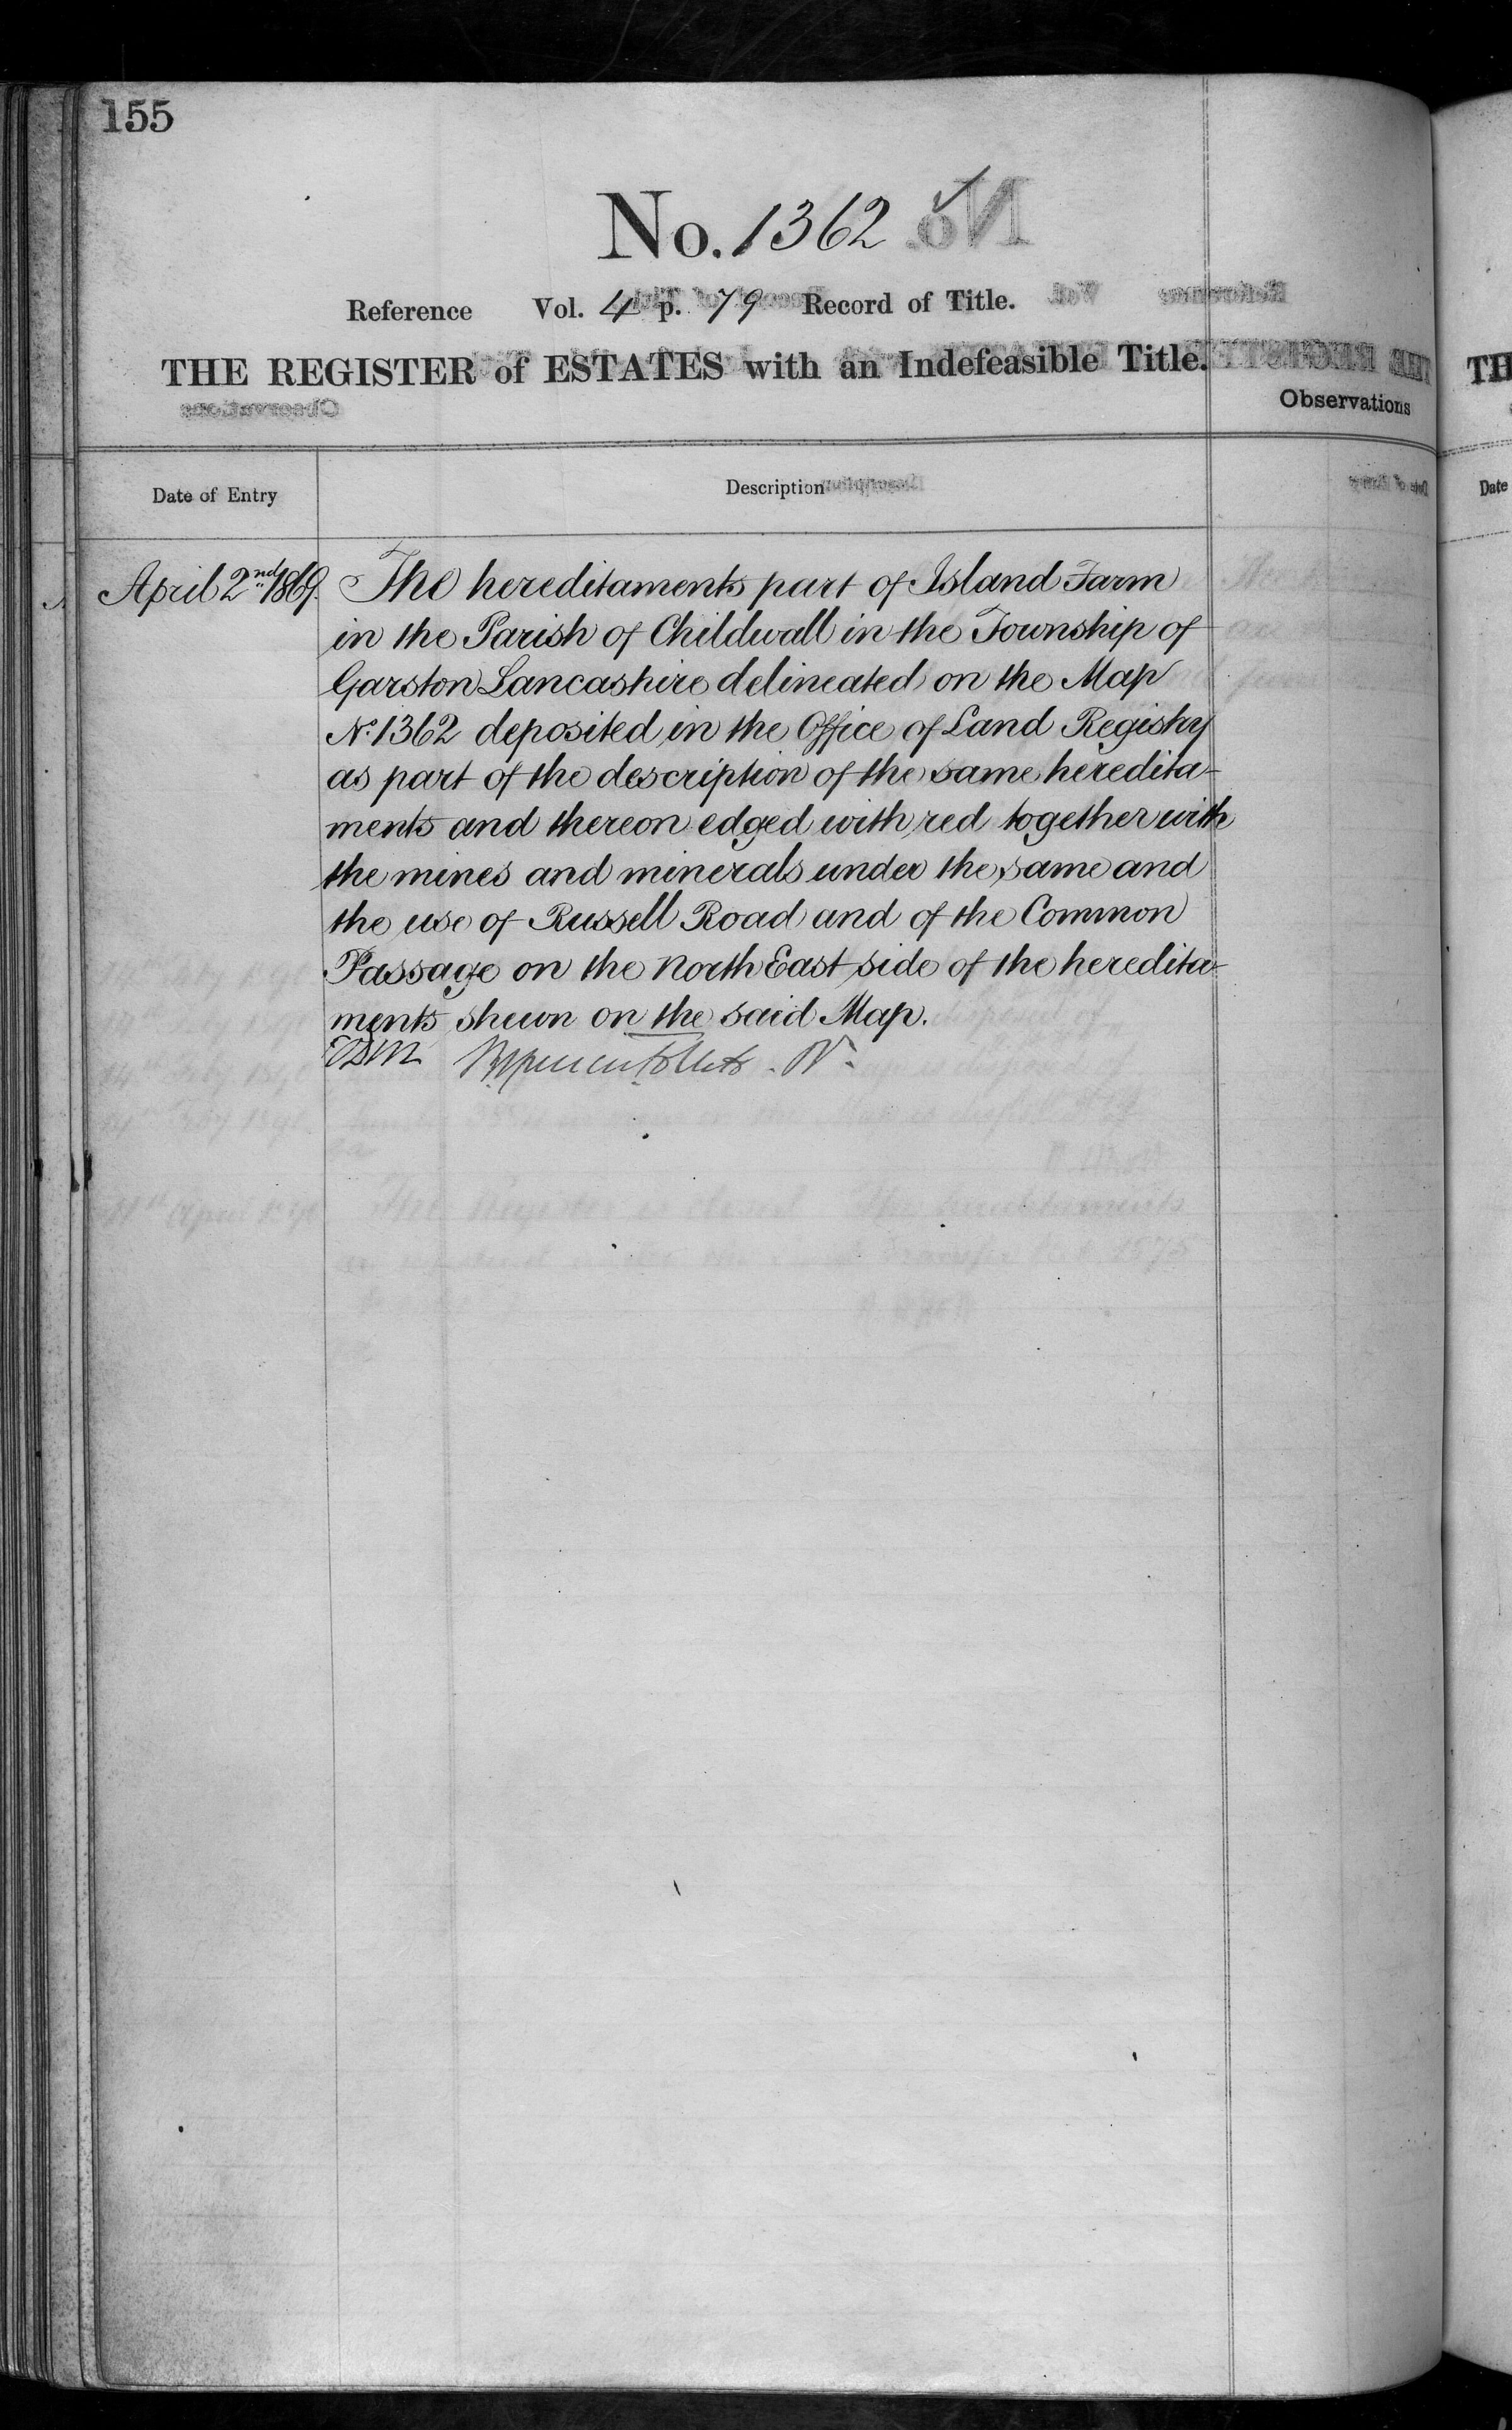 155
No. 1362
Reference Vol. 4 p. 79 Record of Title.
THE REGISTER of ESTATES with an Indefeasible Title.
Observations
Date of Entry
Description
April 2nd 1869. The hereditaments part of Island Farm
in the Parish of Childwall in the Township of
Garston Lancashire delineated on the Map
No. 1362 deposited in the Office of Land Registry
as part of the description of the same heredita-
ments and thereon edged with red together with
the mines and minerals under the same and
the use of Russell Road and of the Common
Passage on the North East side of the heredita-
ments shewn on the said Map.
TH
Date